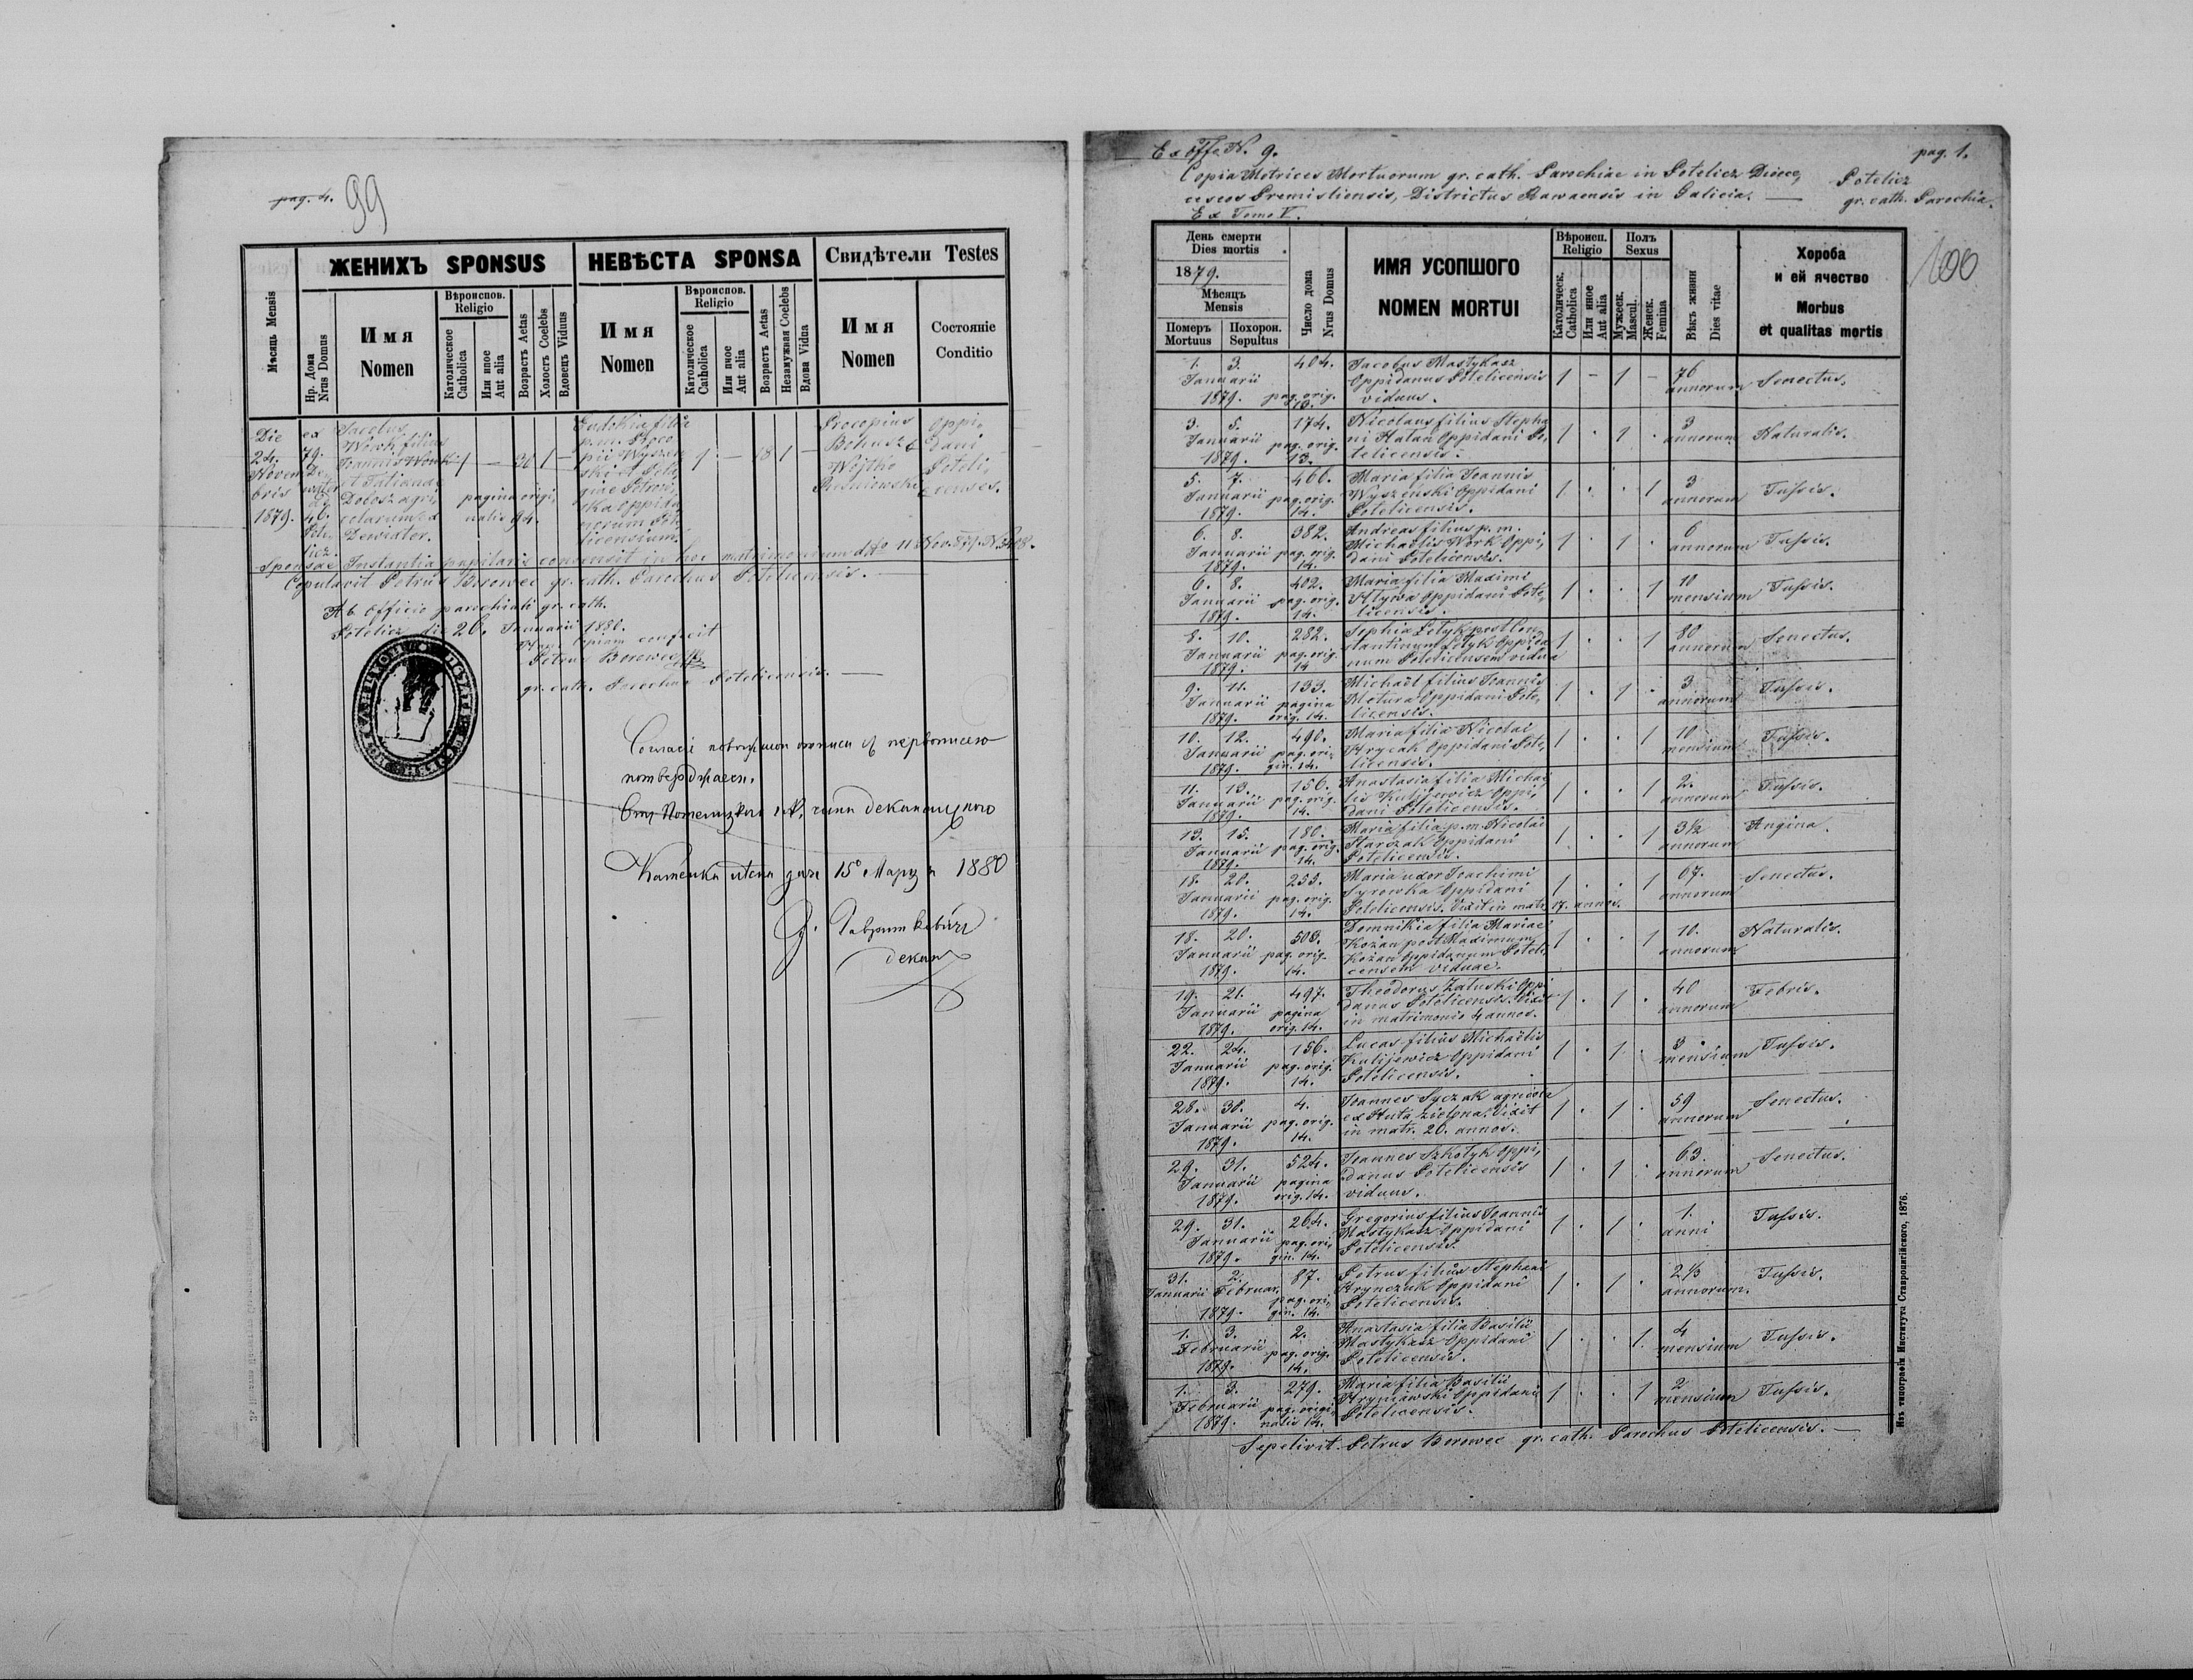 pag. 4. 99
ЖЕНИХЪ SPONSUS
НЕВѢСТА SPONSA
Свидѣтели Testes
Мѣсяць Mensis
Нр. Дома
Nrus Domus
Имя
Nomen
Вѣроиспов.
Religio
Католическое
Catholica
Или иное
Aut alia
Возрастъ Aetas
Холостъ Coelebs
Вдовецъ Viduus
Имя
Nomen
Вѣроиспов.
Religio
Католическое
Catholica
Или иное
Aut alia
Возрастъ Aetas
Незамужная Coelebs
Вдова Vidua
Имя
Nomen
Состояніе
Conditio
Die
24.
Novem
bris
1879.
ex
79.
De
wiater
et
46.
Pote
licz.
Jacobus
Work filius
Joannis Work
et Tatianae
Dobosz agri
colarum ex
Dewiater.
1 — 30 1 —
pagina origi,
nalis 94.
Eudokia filia
p.m. Proco
pii Wyszen
ski et Pela
giae Petrow,
ska Oppida
norum Pote
licensium.
1 · — 18 1 —
Procopius
Bohusz &
Wojtko
Oppi,
dani
Poteli,
censes.
Sponsae Instantia pupilaris consensit in hoc matrimonium ddto 11 Nov. 879.
Copulavit Petrus Borowec gr. cath. Parochus Potelicensis. —
Ab Officio parochiali gr. cath.
Potelicz die 26. Januarii 1880.
Hanc Copiam confecit
Petrus Borowec
gr. cath. Parochus Potelicensis. —
потверджаєм.
15° Марца 1880
декан
Ex Offo N. 9. pag. 1.
Copia Metrices Mortuorum gr. cath. Parochiae in Potelicz Dioece,
ceseos Premisliensis, Districtus Rawaensis in Galicia. —
Ex Tomo V.
Potelicz
gr. cath. Parochia.
100
День смерти
Dies mortis
1879.
Мѣсяцъ
Mensis
Померъ
Mortuus
Похорон.
Sepultus
Число дома
Nrus Domus
ИМЯ УСОПШОГО
NOMEN MORTUI
Вѣроисп.
Religio
Католическ.
Catholica
Или иное
Aut alia
Полъ
Sexus
Мужеск.
Mascul.
Женск.
Femina
Вѣкъ жизни
Dies vitae
Хороба
и ей ячество
Morbus
et qualitas mortis
1. 3. 404. Jacobus Mastykasz 1 – 1 – 76
Januarii Oppidanus Potelicensis annorum Senectus.
1879. pag. orig. 13. viduus.
3. 5. 174. Nicolaus filius Stepha 1 · 1 · 3
Januarii pag. orig. ni Hatan Oppidani Po, annorum Naturalis.
1879. 13. telicensis.
5. 7. 460. Maria filia Joannis 1 · · 1 3
Januarii pag. orig. Wyszenski Oppidani annorum Tussis.
1879. 14. Potelicensis.
6. 8. 382. Andreas filius p. m. 1 · 1 · 6
Januarii pag. orig. Michaelis Work Oppi, annorum Tussis.
1879. 14. dani Potelicensis.
6. 8. 402. Maria filia Maximi 1 · · 1 10
Januarii pag. orig. Hlywa Oppidani Pote, mensium Tussis.
1879. 14. licensis.
8. 10. 282. Sophia Letyk post Con 1 · · 1 80
Januarii pag. orig. stantinum Letyk Oppida annorum Senectus.
1879. 14 num Potelicensem vidua
9. 11. 133. Michaël filius Joannis 1 · 1 · 3
Januarii pagina Metura Oppidani Pote, annorum Tussis.
1879. orig. 14. licensis.
10. 12. 490. Maria filia Nicolai 1 · · 1 10
Januarii pag. ori- Hrycak Oppidani Pote, mensium Tussis.
1879. gin. 14. licensis.
11. 13. 156. Anastasia filia Michaë 1 · · 1 2.
Januarii pag. orig. lis Kulijewicz Oppi, annorum Tussis.
1879. 14. dani Potelicensis.
13. 15. 180. Maria filia p. m. Nicolai 1 · · 1 3½
Januarii pag. orig. Harszak Oppidani annorum Angina.
1879. 14. Potelicensis.
18. 20. 253. Maria uxor Joachimi 1 · · 1 67.
Januarii pag. orig. Syrowka Oppidani annorum Senectus.
1879. 14. Potelicensis. Vixit in matr. 17. annos.
18. 20. 503. Domnikia filia Mariae 1 · · 1 10.
Januarii pag. orig. Kożan post Maximum annorum Naturalis.
1879. 14. Kożan Oppidanum Poteli,
censem viduae.
19. 21. 497. Theodorus Załuski Oppi 1 · 1 · 40
Januarii pagina danus Potelicensis. Vixit annorum Febris.
1879. orig. 14. in matrimonio 4 annos.
22. 24. 156. Lucas filius Michaëlis 1 · 1 · 3
Januarii pag. orig. Kulijewicz Oppidani mensium Tussis.
1879. 14. Potelicensis.
28. 30. 4. Joannes Syczak agricola 1 · 1 · 59
Januarii pag. orig. ex Huta zielona. Vixit annorum Senectus.
1879. 14. in matr. 20. annos.
29. 31. 524. Joannes Szkotyk Oppi, 1 · 1 · 63.
Januarii pagina danus Potelicensis annorum Senectus.
1879. orig. 14. viduus.
29. 31. 264. Gregorius filius Joannis 1 · 1 · 1.
Januarii pag. ori, Mastykasz Oppidani anni Tussis.
1879. gin. 14. Potelicensis.
31. 2. 87. Petrus filius Stephani 1 · 1 · 2⅓
Januarii Februar. pag. ori, Hrynczuk Oppidani annorum. Tussis.
1879. gin. 14. Potelicensis.
1. 3. 2. Anastasia filia Basilii 1 · · 1. 4
Februarii pag. orig. Mastykasz Oppidani mensium Tussis.
1879. 14. Potelicensis.
1. 3. 279. Maria filia Basilii 1 · · 1 2
Februarii pag. origi, Hryniawski Oppidani mensium Tussis.
1879. nalis 14. Potelicensis.
Sepelivit Petrus Borowec gr. cath. Parochus Potelicensis. —
Изъ типографіи Института Ставропигійского, 1876.